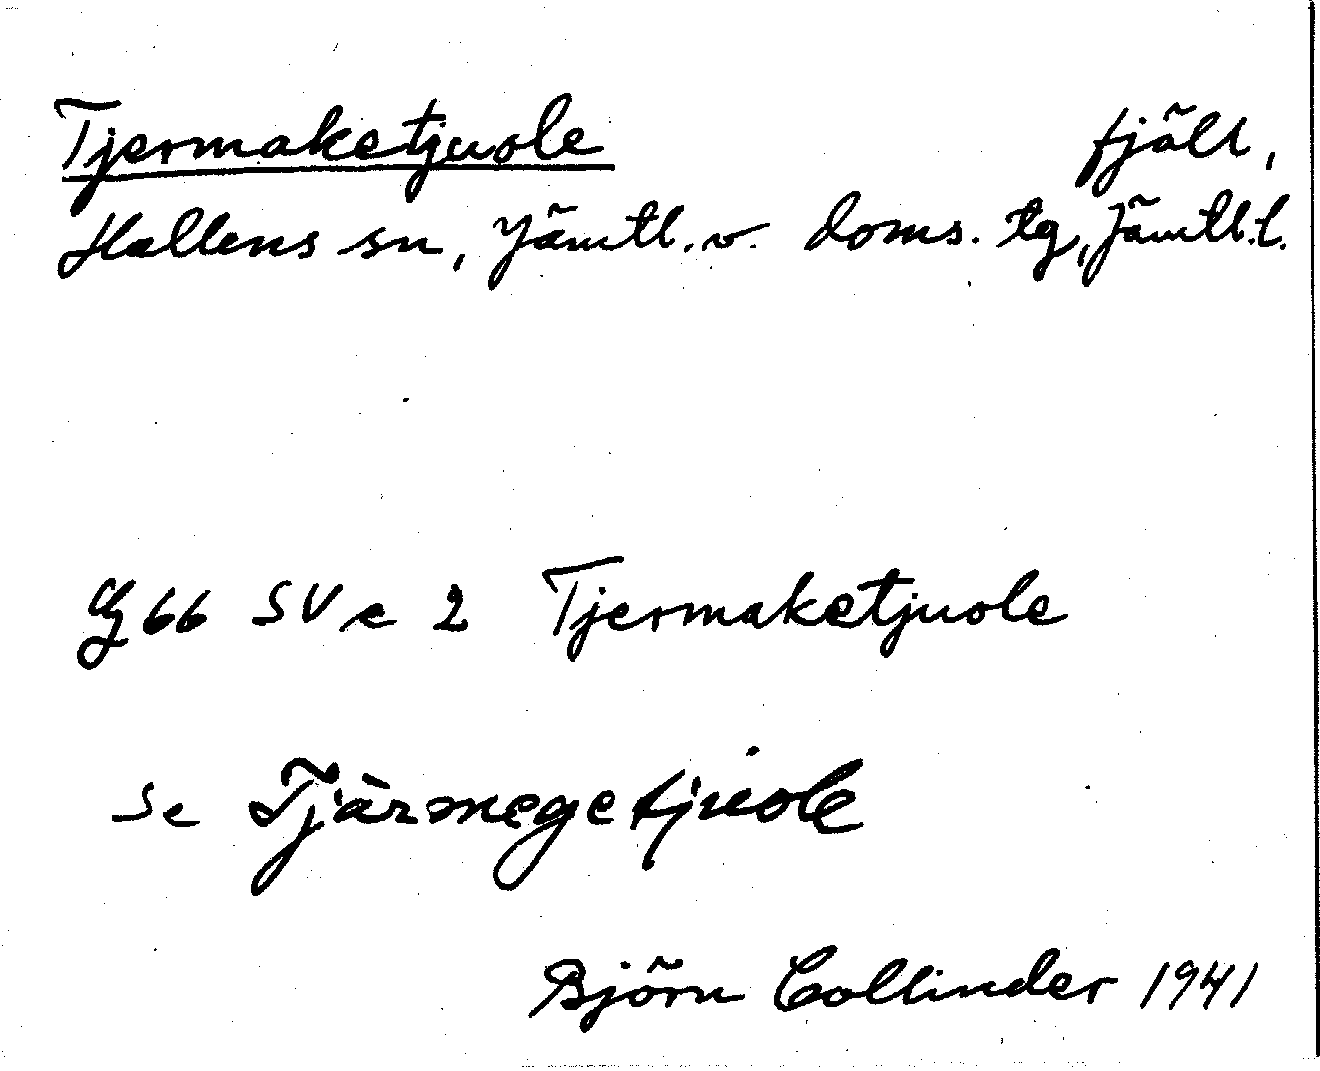 Tjermaketjuole fjäll,
Hallens sn, Jämtl. v. doms. tg, Jämtl. l.
G 66 SV e 2 Tjermaketjuole
Se Tjärmegetjuole
Björn Collinder 1941